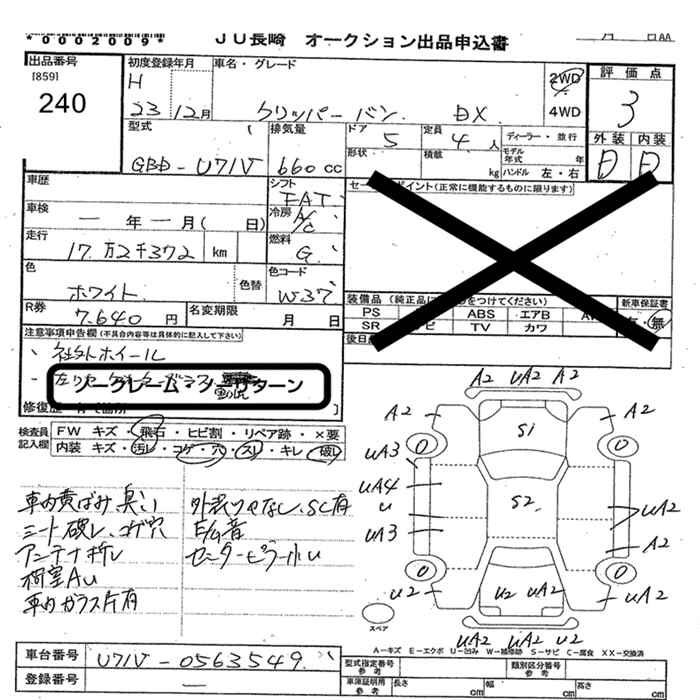 *0002009*
JU長崎 オークション出品申込書
月 日AA
出品番号
[859]
240
初度登録年月
H
23 12月
車名・グレード
クリッパーバン DX
2WD
4WD
評価点
3
外装 内装
D D
型式 (
GBD-U71V
排気量
660cc
ドア
5
定員
4人
ディーラー・並行
形状
積載
kg
モデル年式 年
ハンドル 左・右
車歴
シフト
FAT
セールスポイント(正常に機能するものに限ります)
車検
ー年ー月( 日)
冷房
A/C
走行
17万2千372 km
燃料
G
色
ホワイト
色替
色コード
W37
R券
7.640円
名変期限
月 日
装備品 (純正品に○をつけてください)
新車保証書
有・無
PS ABS エアB AW
SR ナビ TV カワ
後日
注意事項申告欄(不具合内容等は具体的に記入して下さい)
社外ホイール
ノークレーム・ノーリターン
修復歴
検査員記入欄
FW キズ・飛石・ヒビ割・リペア跡・×要
内装 キズ・汚レ・コゲ・穴・スレ・キレ・破レ
車内黄ばみ臭い
シート破レ、コゲ穴
アンテナ折レ
荷室AU
車内ガラス片有
外装ツヤなし、SC有
E/G音
センターピラー小U
A2 UA2 A2
A2 S1 A2
UA3 0 0
UA4
U S2 UA2
UA3 A2
0 0
U2 U2 UA2 UA2
UA2 UA2 U2
スペア
A-キズ E-エクボ U-凹み W-補修跡 S-サビ C-腐食 XX-交換済
車台番号
U71V-0563549
登録番号
ー
型式指定番号
参考
類別区分番号
参考
車庫証明用
参考
長さ cm
幅 cm
高さ cm